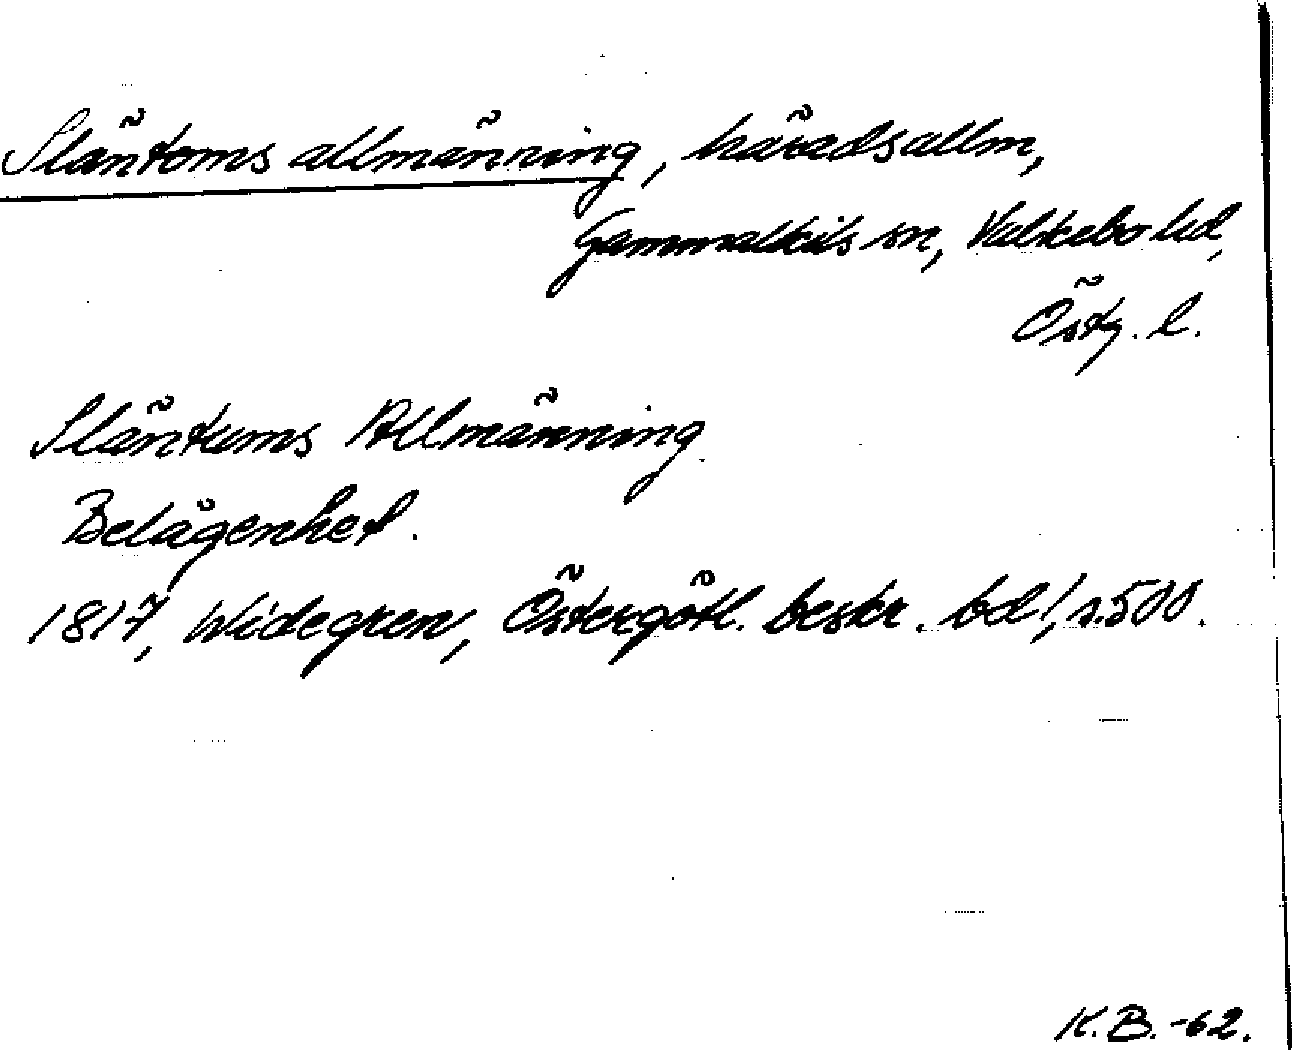 Släntoms allmänning, häradsallm,
Gammalkils sn, Valkebo hd,
Östg. l.
Släntums Allmänning
Belägenhet.
1817, Widegren, Östergötl. beskr. bd 1, s. 500.
K.B. -62.